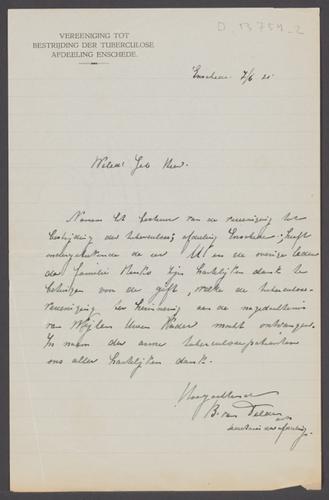 D. B 759-2
VEREENIGING TOT
BESTRIJDING DER TUBERCULOSE
AFDEELING ENSCHEDE.
Enschede 7/6 20
WelEd. Geb Heer.
Namens het bestuur van de vereeniging tot
bestrijding der tuberculose; afdeeling Enschede; heeft
ondergeteekende de eer U en de overige leden
der familie Menko zijn hartelijken dank te
betuigen voor de gift, welke de tuberculose-
vereeniging ter herinnering aan de nagedachtenis
van Wijlen Uwen Vader mocht ontvangen.
In naam der arme tuberculosepatienten
ons aller hartelijken dank.
Hoogachtend
B. van Delden
secretaris der afdeeling.